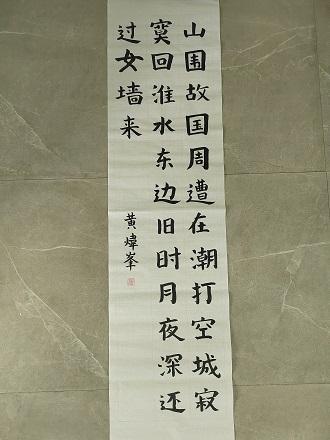 山围故国周遭在潮打空城寂
寞回淮水东边旧时月夜深还
过女墙来
黄煒峯